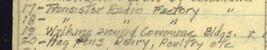 17 - Transistor Radio Factory - "
18 - " " "
19 Walking around Commune Bldgs.
20 - Hog Pens, Dairy, Poultry etc